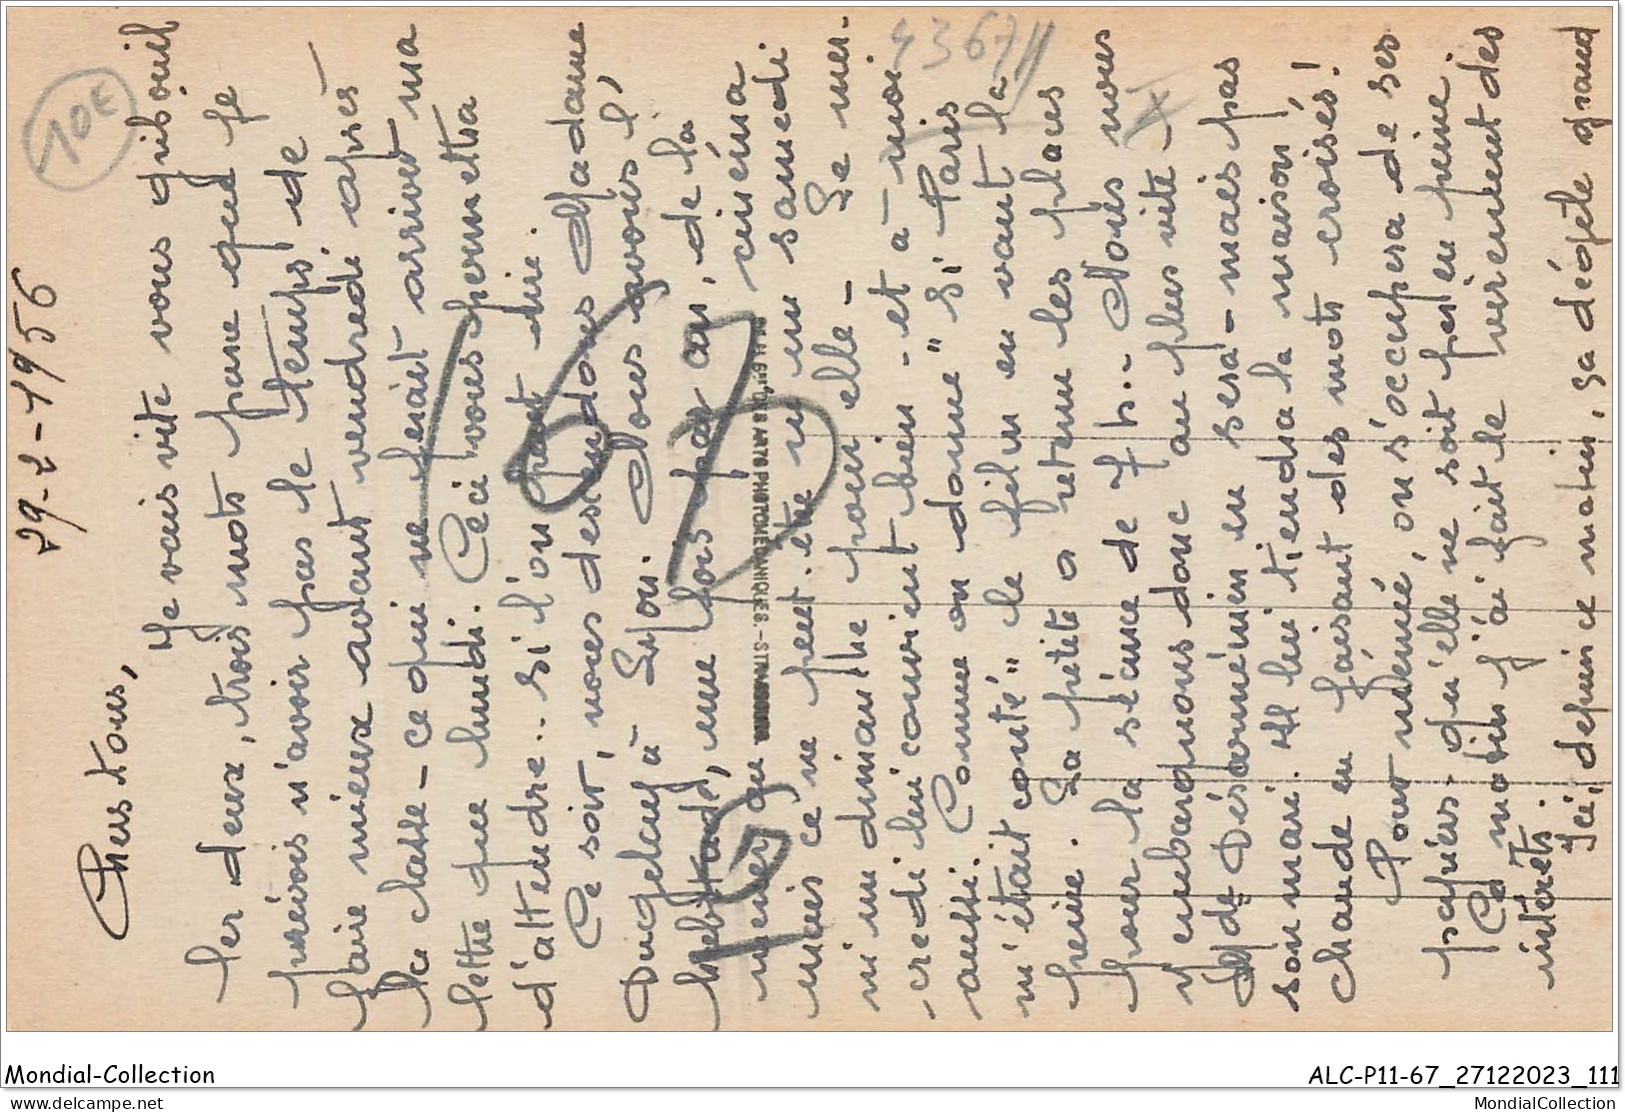 29-2-1956
Chers tous,
Je vais vite vous gribouil
ler deux, trois mots parce que je
prévois n'avoir pas le temps de
faire mieux avant vendredi après
la classe - ce qui ne ferait arriver ma
lettre que lundi. Ceci vous permettra
d'attendre.. si l'on peut dire.
Ce soir, nous descendons Madame
Duquelcuf à Lyon. Nous avons l'
habitude, une fois par an, de la
mener au cinéma
mais ce ne peut être ni un samedi
ni un dimanche pour elle - Le mer-
credi lui convient bien - et à moi
aussi. Comme on donne "Si Paris
m'était conté" le film en vaut la
peine. La petite a retenu les places
pour la séance de 7 h.- Nous nous
y embarquons donc au plus vite -
M. de Désarménien en sera - mais pas
son mari. Il lui tiendra la maison
chaude en faisant des mots croisés!
Pour mémé, on s'occupera de ses
papiers - qu'elle ne soit pas en peine.
Ce matin j'ai fait le virement des
intérêts.
Ici, depuis ce matin, ça dégèle grand
10€
4367//
67
PH. H. ÉDITIONS D'ARTS PHOTOMÉCANIQUES. - STRASBOURG
Mondial-Collection
ALC-P11-67_27122023_111
www.delcampe.net
MondialCollection